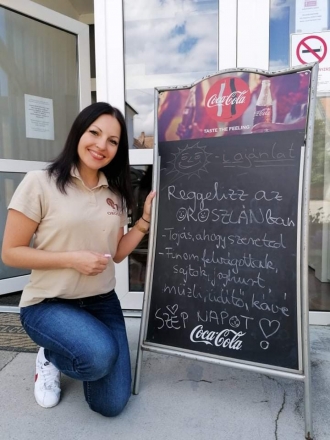 Coca-Cola
TASTE THE FEELING
Coca-Cola
Ajánlat
Reggelizz az
OROSZLÁNban
- Tojás, ahogy szereted
- Finom felvágottak,
sajtok, joghurt,
müzli, üdítő, kávé
SZÉP NAPOT!
Coca-Cola